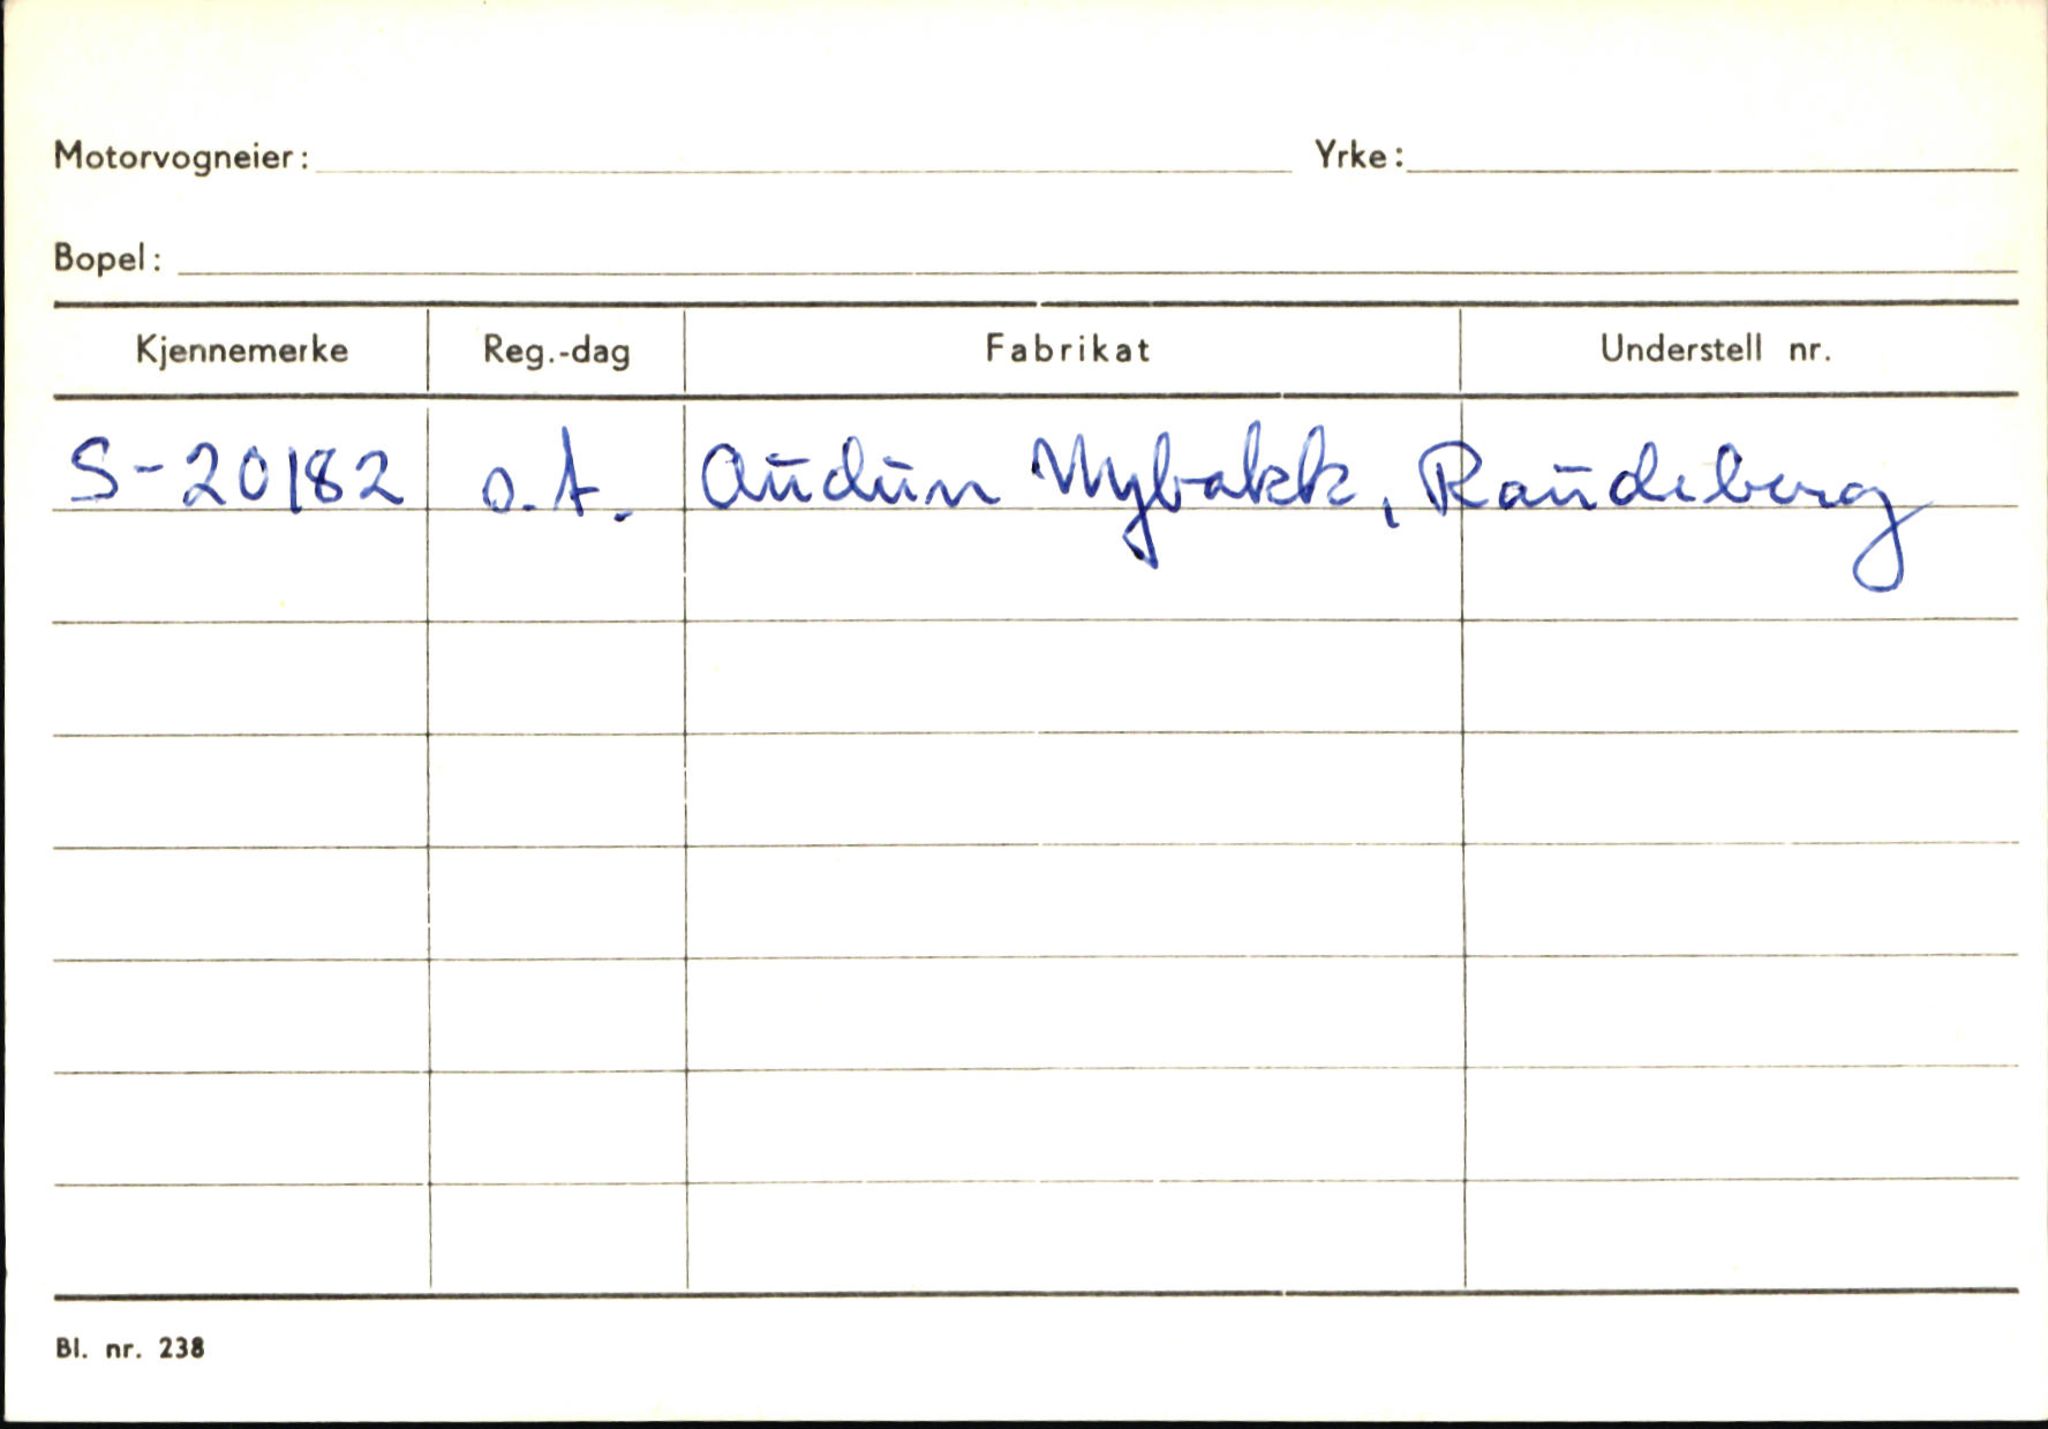 Motorvogneier: Yrke:
Bopel:
Kjennemerke Reg.-dag Fabrikat Understell nr.
S-20182 o.t. Audun Nybakk, Raudeberg
Bl. nr. 238